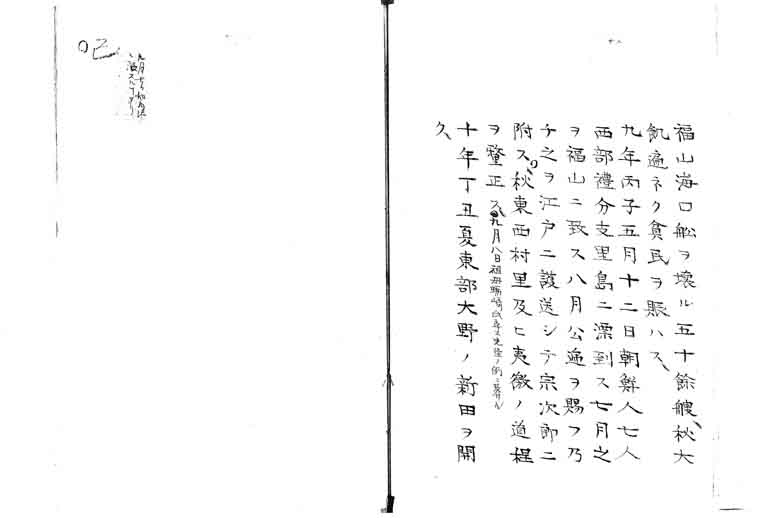 福山海口舩ヲ壞ル五十餘艘、秋大
飢遍ネク貧民ヲ賑ハス、
九年丙子五月十二日朝鮮人七人
西部禮分支里島ニ漂到ス七月之
ヲ福山ニ致ス八月公逓ヲ賜フ乃
チ之ヲ江戸ニ護送シテ宗次郎ニ
附ス、秋東西村里及ヒ夷徼ノ道程
ヲ釐正ス、九月八日祖母蠣崎氏卒ス先塋ノ側ニ葬ル
十年丁丑夏東部大野ノ新田ヲ開
ク、
○己